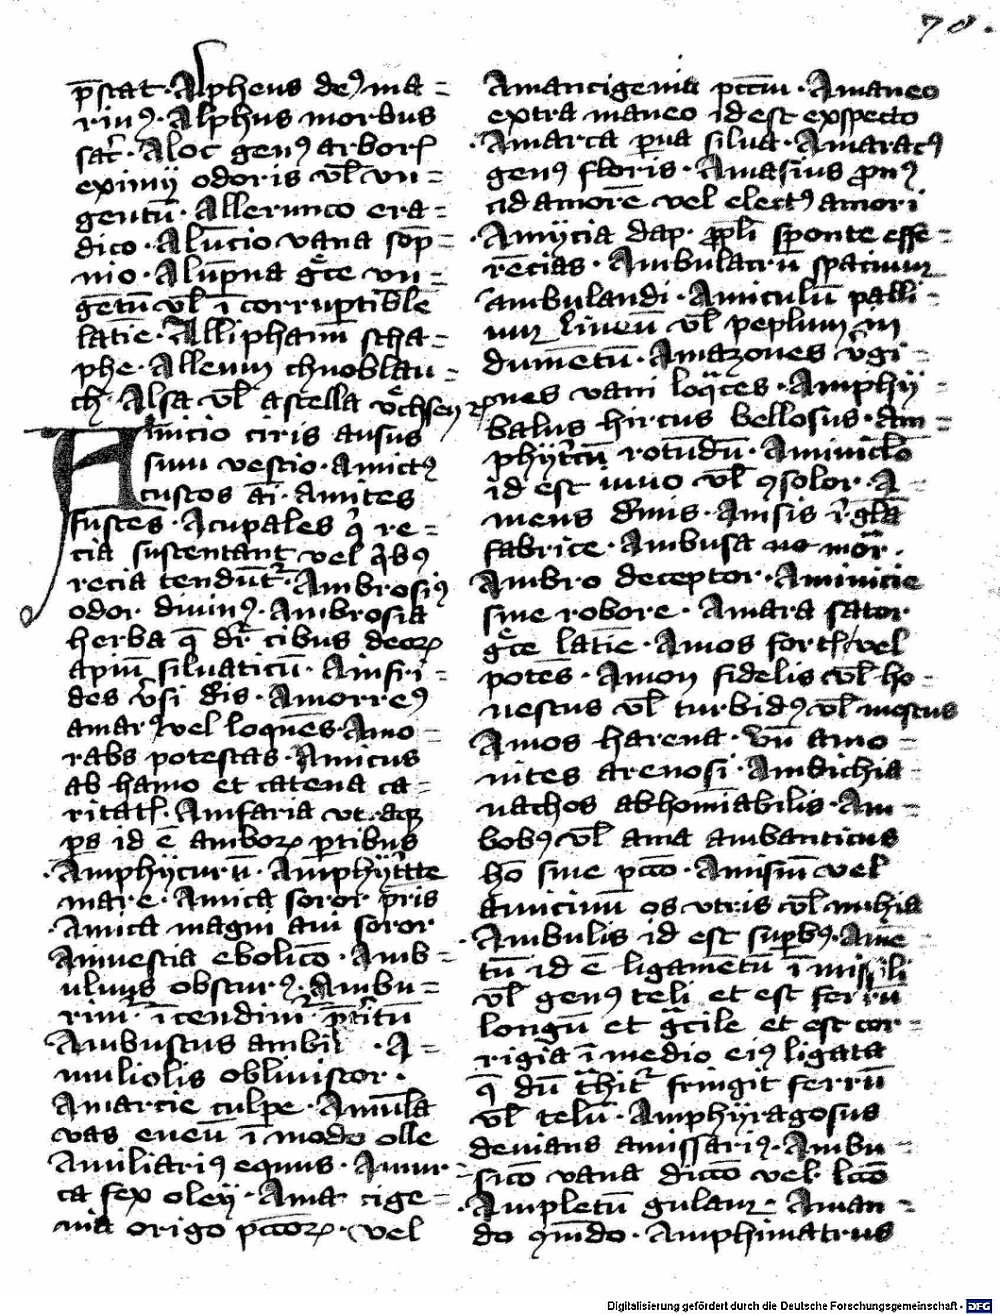 70.
p̄stat · Alpheus de9 ma=
rin9 · Alphus morbus
sac̄ · Aloc gen9 arbor
eximij odoris vl̄ vn=
gentū · Allerunco era=
dico · Alucio vana sop̄=
nio · Alup̄na gͨce vn=
getū vl̄ ī corruptibl̄e
latīe · Alliphanū scha=
phe · Alleum chnoblau=
ch · Alsa vl̄ ascella vͤchsen
Amicio ciris ausus
sum vestio · Amict9
custos aī · Amites
fustes · Acupales q̄ re=
cia sustentant vel q̄b9
recia tendūt · Ambrosi9
odor diuin9 · Ambrosia
herba q̄ dr̄ cibus deoꝝ
apiū siluaticū · Amfri=
des v̄si dīs · Amorre9
amar9 vel loquēs · Amo=
rabs potestas · Amicus
ab hamo et catena ca=
ritat · Amfaria vt aq
ps id ē amboꝝ ptibus
Amphycurū · Amphytrite
mare · Amica soror pr̄is
Amica magni aui soror
Amnestia ebolico · Amb=
uluus obscur9 · Ambu=
rim īcendim p̄tritū
Ambustus ambi · A=
muliolis obliuiscor ·
Amarcie culpe · Amula
vas eneū ī modo olle
Amiliari9 equus · Amur=
ca fex oley · Ama cige=
nia origo pc̄coꝝ · vel
Amancigenia pc̄cm · Amaneo
extra maneo id est exspecto
Amarca p̄ua silua · Amarac9
gen9 floris · Amasius pn9
ad amorē vel elect9 amori
Amycia dap · ppli sponte esse=
recias · Ambulacrū spacium
ambulandi · Amiculū palli=
um lineū vl̄ peplum in
dumētū · Amazones v̄gi=
nes vani loqͣces · Amphy=
balus hircus bellosus · am=
phytcū rotūdū · Aminiclo
id est iuuo vl̄ 9solor · A=
mens dīnis · Amsis r̄gla
fabrice · Ambusa no mor̄ ·
Ambro deceptor · Aminicie
sine robore · Amara sator
gͨce latīe · Amos fort vel
potēs · Amon fidelis vl̄ ho=
nestus vl̄ turbid9 vl̄ mestus
Amos harena · vn̄ amo=
nites arenosi · Ambichia=
nachos abhomīabilis · Am=
bob9 vl̄ ama ambanticus
ho sine pc̄co · Amisiū vel
amicinū os vtris vl̄ nuhia
Ambulis id est sup̄b9 · Amē=
tū id ē ligamētū ī missili
vl̄ gen9 teli et est ferrū
longū et gͣcile et est cor=
rigia ī medio ei9 ligata
q̄ dū t̄hit fringit ferrū
vl̄ telū · Amphyragosus
deuians amissari9 · Ambu=
sico vana dicco vel lcco
Ampletū gulam · Aman=
do 9mdo · Amphimatrus
Digitalisierung gefördert durch die Deutsche Forschungsgemeinschaft - DFG